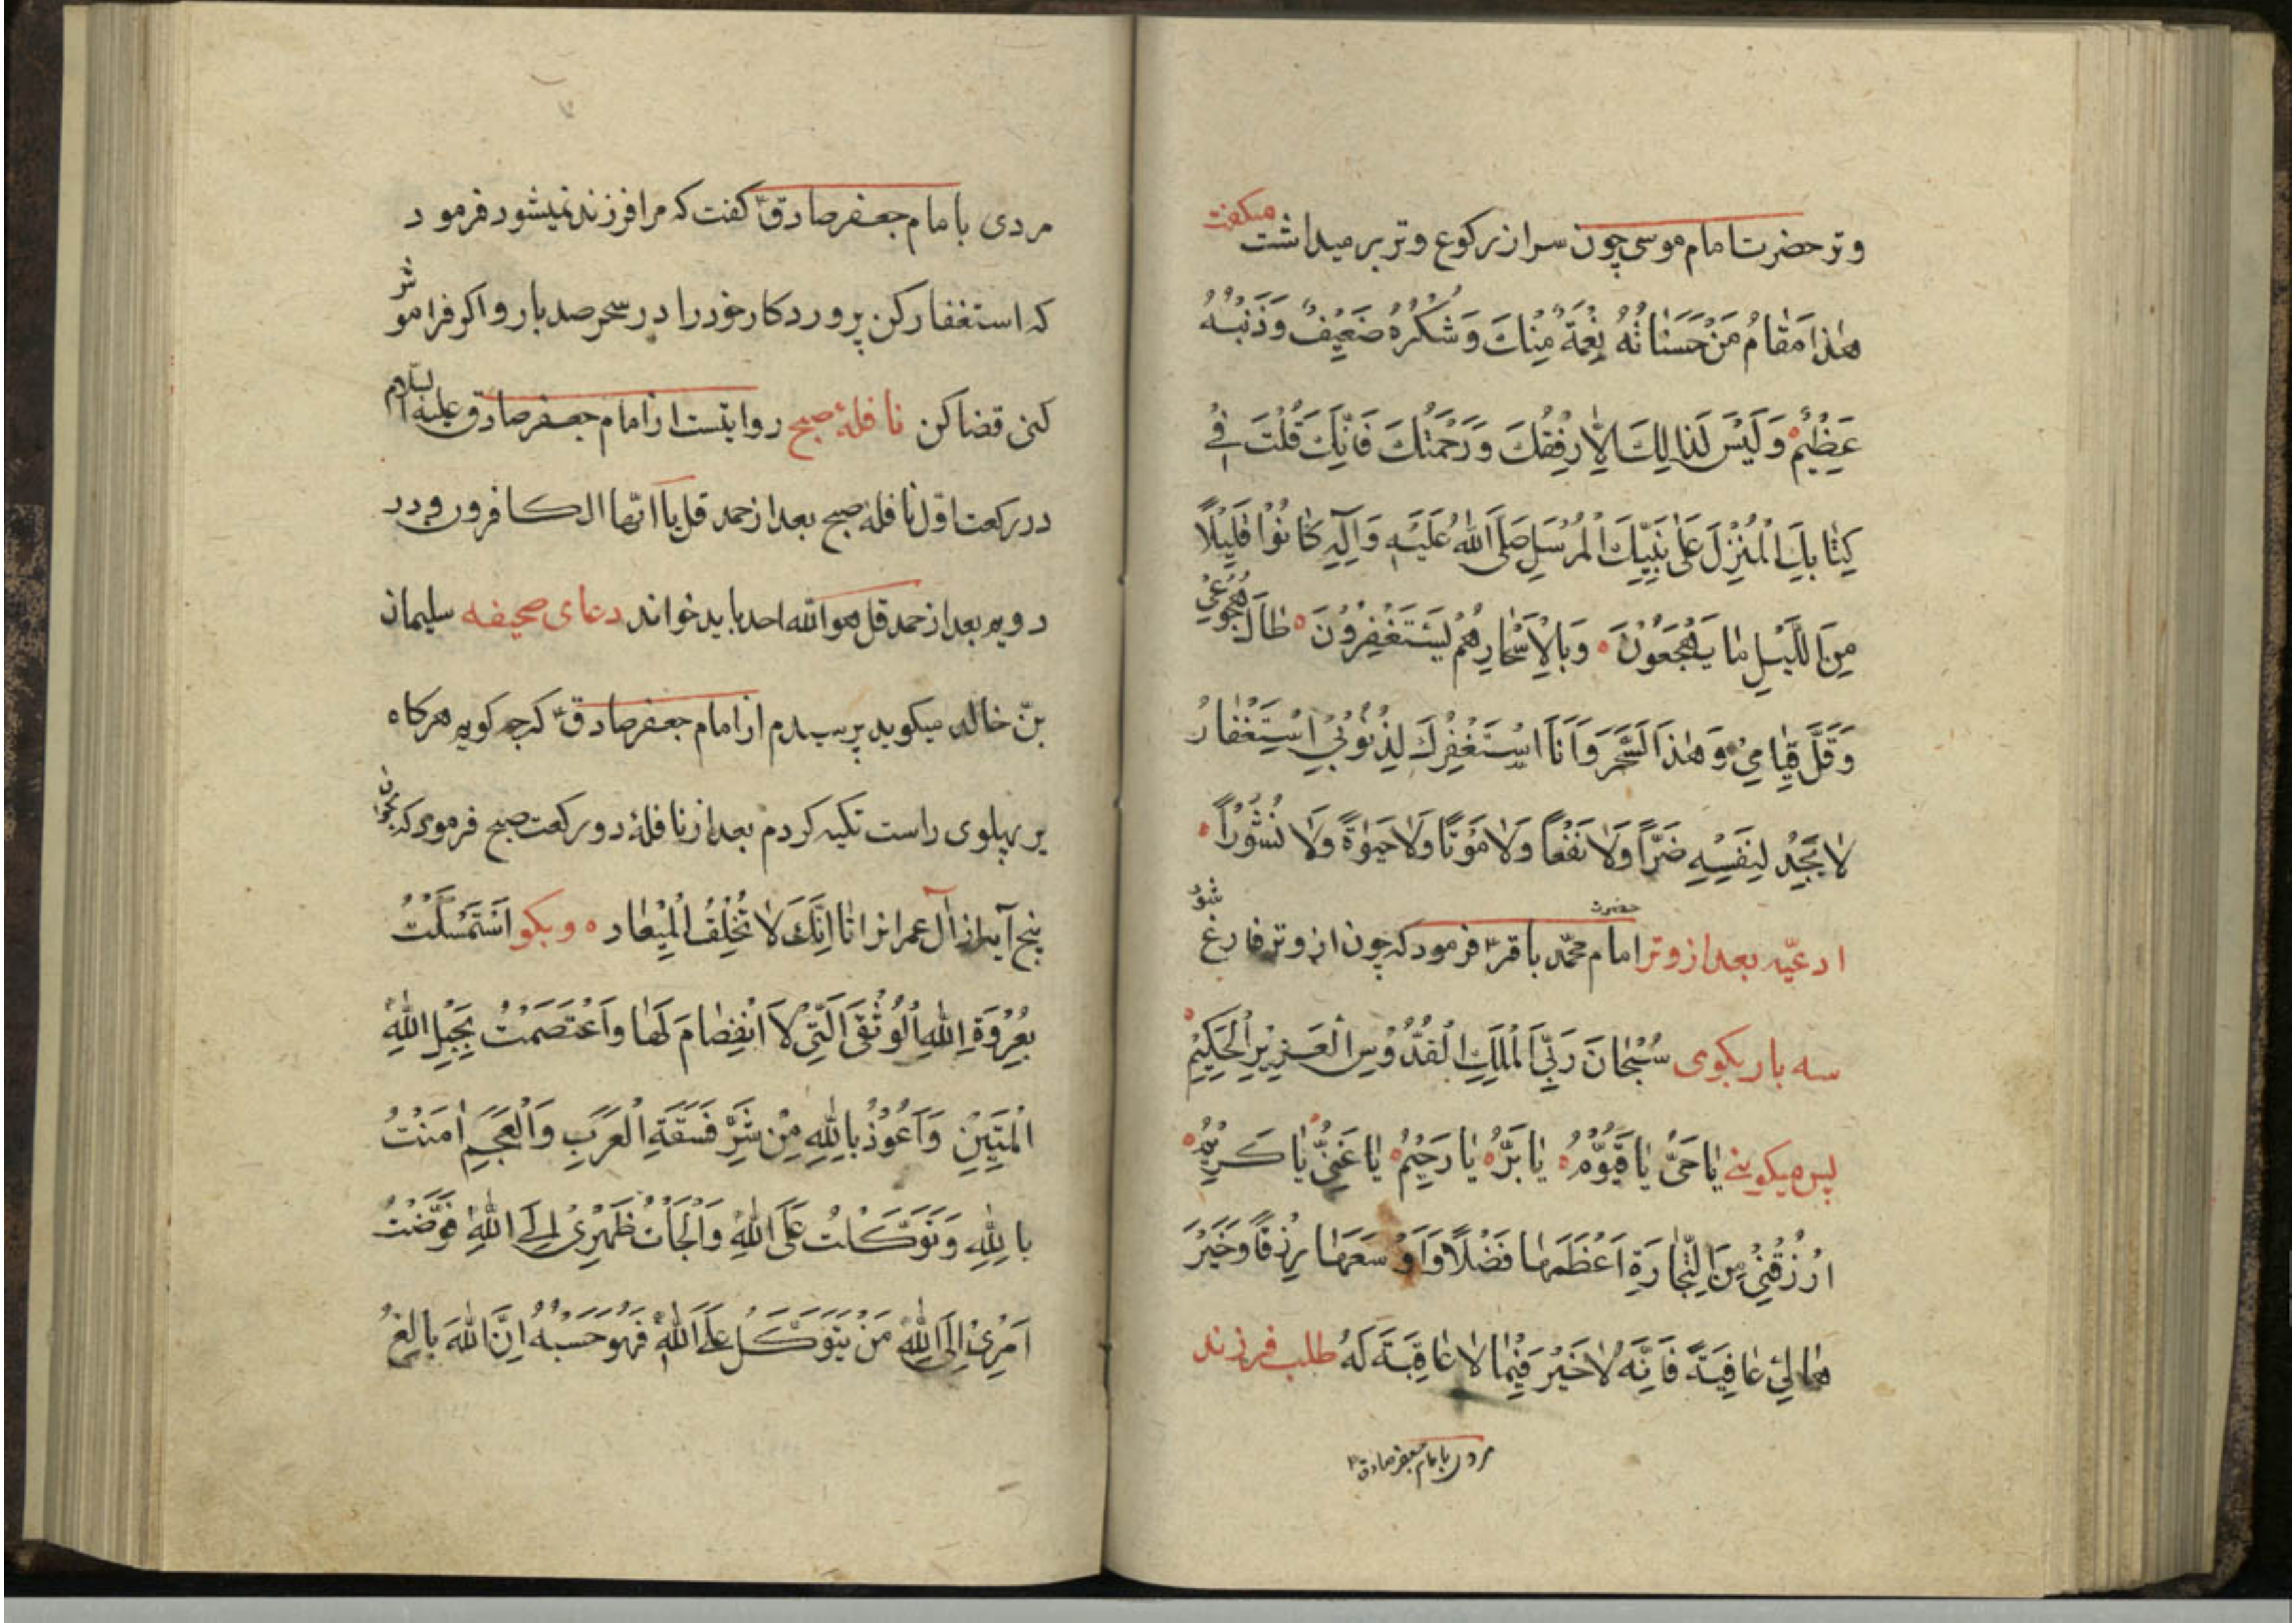 وتر حضرت امام موسی چون سر از رکوع وتر بر میداشت میکفت
هٰذا مَقٰامُ مَنْ حَسَنٰاتُهُ نِعْمَةٌ مِنْكَ وَشُكْرُهُ ضَعِيْفٌ وَذَنْبُهُ
عَظِيْمٌ وَلَيْسَ لَذالِكَ اِلّٰا رِفْقُكَ وَرَحْمَتُكَ فَاِنَّكَ قُلْتَ فِي
كِتٰابِكَ الْمُنْزَلِ عَلٰى نَبِيِّكَ الْمُرْسَلِ صَلَّى اللّٰهُ عَلَيْهِ وَآلِهِ كٰانُوْا قَلِيْلًا
مِنَ اللَّيْلِ مٰا يَهْجَعُوْنَ وَبِالْاَسْحٰارِهُمْ يَسْتَغْفِرُوْنَ طٰالَ هُجُوْعِيْ
وَقَلَّ قِيٰامِيْ وَهٰذَا السَّحَرُ وَاَنَا اَسْتَغْفِرُكَ لِذُنُوْبِيْ اسْتِغْفٰارُ
لٰا يَجِدُ لِنَفْسِهِ ضَرّاً وَلٰا نَفْعاً وَلٰا مَوْتًا وَلٰا حَيٰوةً وَلٰا نُشُوْراً
ادعیّه بعد از وتر حضرت امام محمّد باقرؑ فرمود که چون از وتر فارغ شود
سه بار بکوی سُبْحٰانَ رَبِّيَ الْمَلِكِ الْقُدُّوْسِ الْعَزِيْزِ الْحَكِيْمِ
پس میکوئی يٰا حَيُّ يٰا قَيُّوْمُ يٰا بَرُّ يٰا رَحِيْمُ يٰا غَنِيُّ يٰا كَرِيْمُ
اُرْزُقْنِيْ مِنَ التِّجٰارَةِ اَعْظَمَهٰا فَضْلًا وَاَوْسَعَهٰا رِزْقًا وَخَيْرَ
هٰا لِيْ عٰافِيَةً فَاِنَّهُ لٰا خَيْرَ فِيْمٰا لٰا عٰاقِبَةَ لَهُ طلب فرزند
مردی بامام جعفر صادقؑ
مردی بامام جعفر صادقؑ کفت که مرا فرزند نمیشود فرمود
که استغفار کن پروردکار خود را در سحر صد بار و اکر فراموش
کنی قضا کن نافلۀ صبح روایتست از امام جعفر صادق علیه السلام
در رکعت اوّل نافلۀ صبح بعد از حمد قل یا ایّها الکافرون و در
دویم بعد از حمد قل هو الله احد باید خواند دعای صحیفه سلیمان
بنّ خالد میکوید پرسیدم از امام جعفر صادقؑ که چه کویم هرکاه
بر پهلوی راست تکیه کردم بعد از نافلۀ دو رکعت صبح فرمود که بخوان
پنج آیه از آل عمران تا اِنَّكَ لٰا تُخْلِفُ الْمِيْعٰاد و بکو اسْتَمْسَكْتُ
بِعُرْوَةِ اللّٰهِ الْوُثْقَى الَّتِيْ لَا انْفِصٰامَ لَهٰا وَاَعْتَصَمْتُ بِحَبْلِ اللّٰهِ
الْمَتِيْنِ وَاَعُوْذُ بِاللّٰهِ مِنْ شَرِّ فَسَقَةِ الْعَرَبِ وَالْعَجَمِ اٰمَنْتُ
بِاللّٰهِ وَتَوَكَّلْتُ عَلَى اللّٰهِ وَاَلْجَأْتُ ظَهْرِيْ اِلَى اللّٰهِ فَوَّضْتُ
اَمْرِيْ اِلَى اللّٰهِ مَنْ يَتَوَكَّلْ عَلَى اللّٰهِ فَهُوَ حَسْبُهُ اِنَّ اللّٰهَ بٰالِغُ